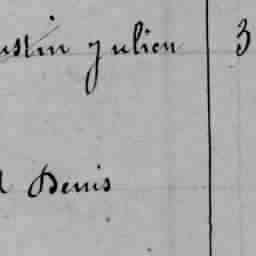 ustin Julien 3
Denis